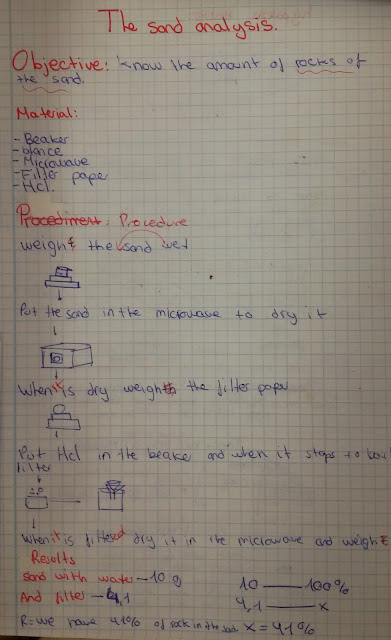 The sand analysis.
Objective: Know the amount of rocks of
the sand.
Material:
- Beaker
- blance
- Microwave
- Filter paper
- Hcl.
Procediment: Procedure
weight the sand wet
Put the sand in the microwave to dry it
When it is dry weigh the filter paper
Put Hcl in the beake and when it stops to boil
filter
When it is filtered dry it in the microwave and weight
Results
Sand with water - 10 g
And filter - 4,1
10 —— 100%
4,1 —— x
R= we have 41% of rock in the sand x = 41%